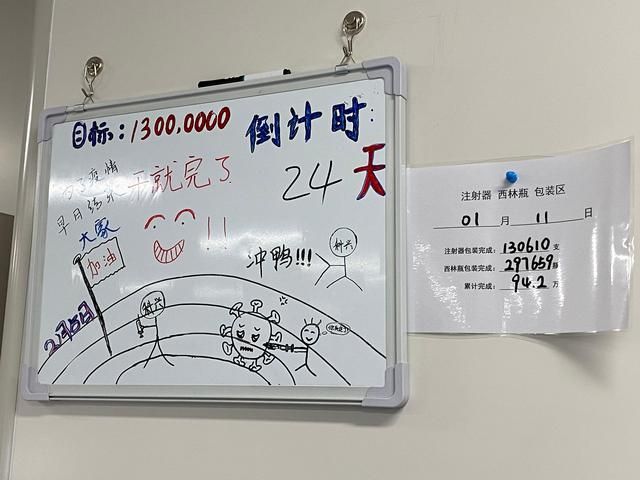 目标：1300,0000
倒计时：
24天
为了疫情
早日结束
干就完了
!!
大家
加油
冲鸭!!!
科兴
2月5日
科兴
注射器 西林瓶 包装区
01 月 11 日
注射器包装完成：130610 支
西林瓶包装完成：297659 瓶
累计完成：94.2 万